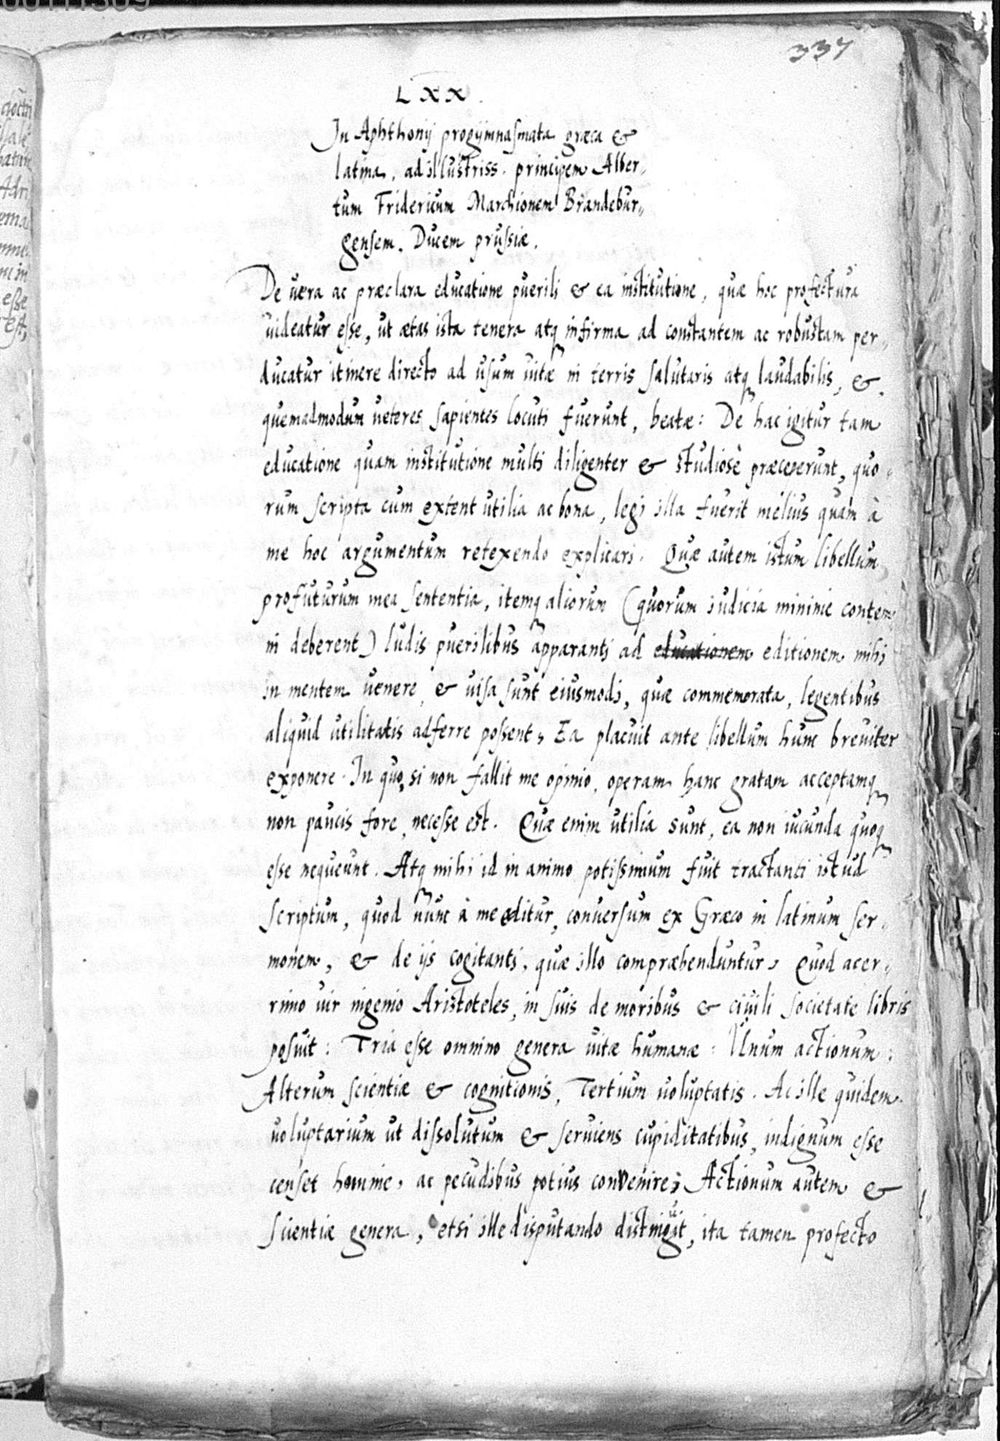 337
LXX.
In Aphthonij progymnasmata græca &
latina, ad illustriss. principem Alber„
tum Fridericum Marchionem Brandebur„
gensem. Ducem prussiæ.
De uera ac præclara educatione puerili & ea institutione, quæ hoc profectura
uideatur esse, ut ætas ista tenera atq infirma ad constantem ac robustam per„
ducatur itinere directo ad usum uitæ in terris salutaris atq laudabilis, &,
quemadmodum ueteres sapientes locuti fuerunt, beatæ: De hac igitur tam
educatione quam institutione multi diligenter & studiosè præceperunt, quo„
rum scripta cum extent utilia ac bona, legi illa fuerit melius quam à
me hoc argumentum retexendo explicari. Quæ autem istum libellum
profuturum mea sententia, itemq aliorum (quorum iudicia minime contem„
ni deberent) ludis puerilibus apparanti ad educationem editionem mihi
in mentem uenere, & uisa sunt eiusmodi, quæ commemorata, legentibus
aliquid utilitatis adferre possent, Ea placuit ante libellum hunc breuiter
exponere. In quo, si non fallit me opinio, operam hanc gratam acceptamq
non paucis fore, necesse est. Quæ enim utilia sunt, ea non iucunda quoq
esse nequeunt. Atq mihi id in animo potissimum fuit tractanti istud
scriptum, quod nunc à me editur, conuersum ex Græco in latinum ser„
monem, & de ijs cogitanti, quæ illo compræhenduntur, Quod acer„
rimo uir ingenio Aristoteles, in suis de moribus & ciuili societate libris
posuit: Tria esse omnino genera uitæ humanæ. Unum actionum:
Alterum scientiæ & cognitionis, Tertium uoluptatis. Ac ille quidem
uoluptarium ut dissolutum & seruiens cupiditatibus, indignum esse
censet homine, ac pecudibus potius convenire; Actionum autem &
scientiæ genera, etsi ille disputando distinguit, ita tamen profecto